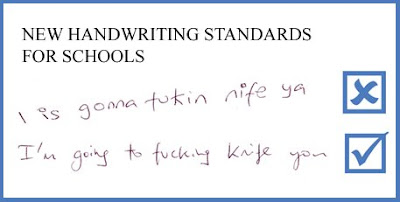 NEW HANDWRITING STANDARDS
FOR SCHOOLS
I is gonna fukin nife ya
I'm going to fucking knife you